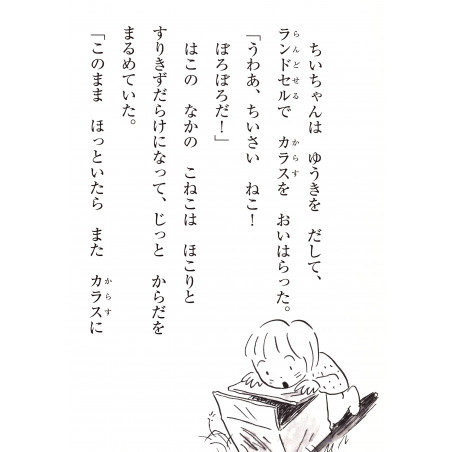 ちいちゃんは　ゆうきを　だして、
ランドセルで　カラスを　おいはらった。
らんどせる　からす
「うわあ、ちいさい　ねこ！
ぼろぼろだ！」
はこの　なかの　こねこは　ほこりと
すりきずだらけになって、じっと　からだを
まるめていた。
「このまま　ほっといたら　また　カラスに
からす